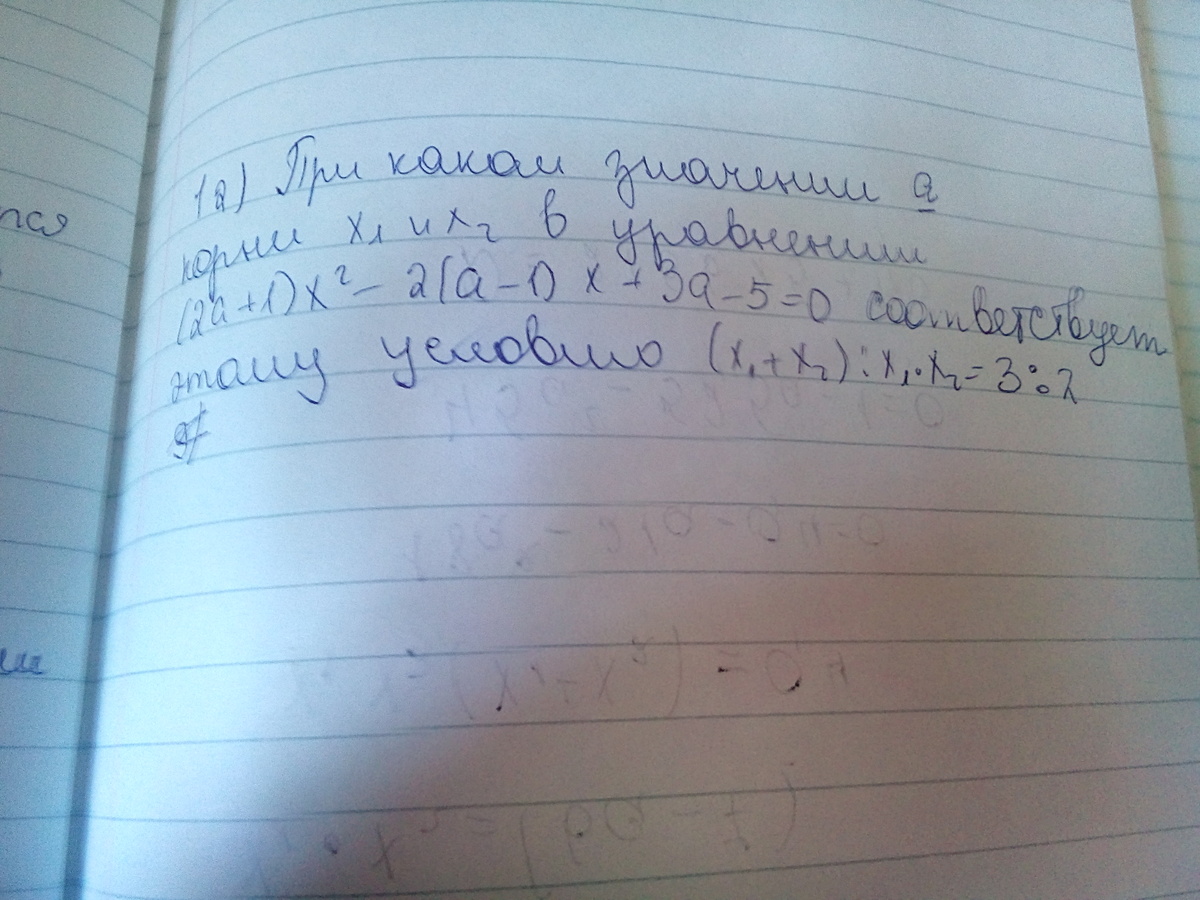 тся
12) При каком значении a
корни x₁ и x₂ в уравнении
(2a+1)x² - 2(a-1) x + 3a - 5 = 0 соответствует
этому условию (x₁+x₂) : x₁•x₂ = 3 : 2